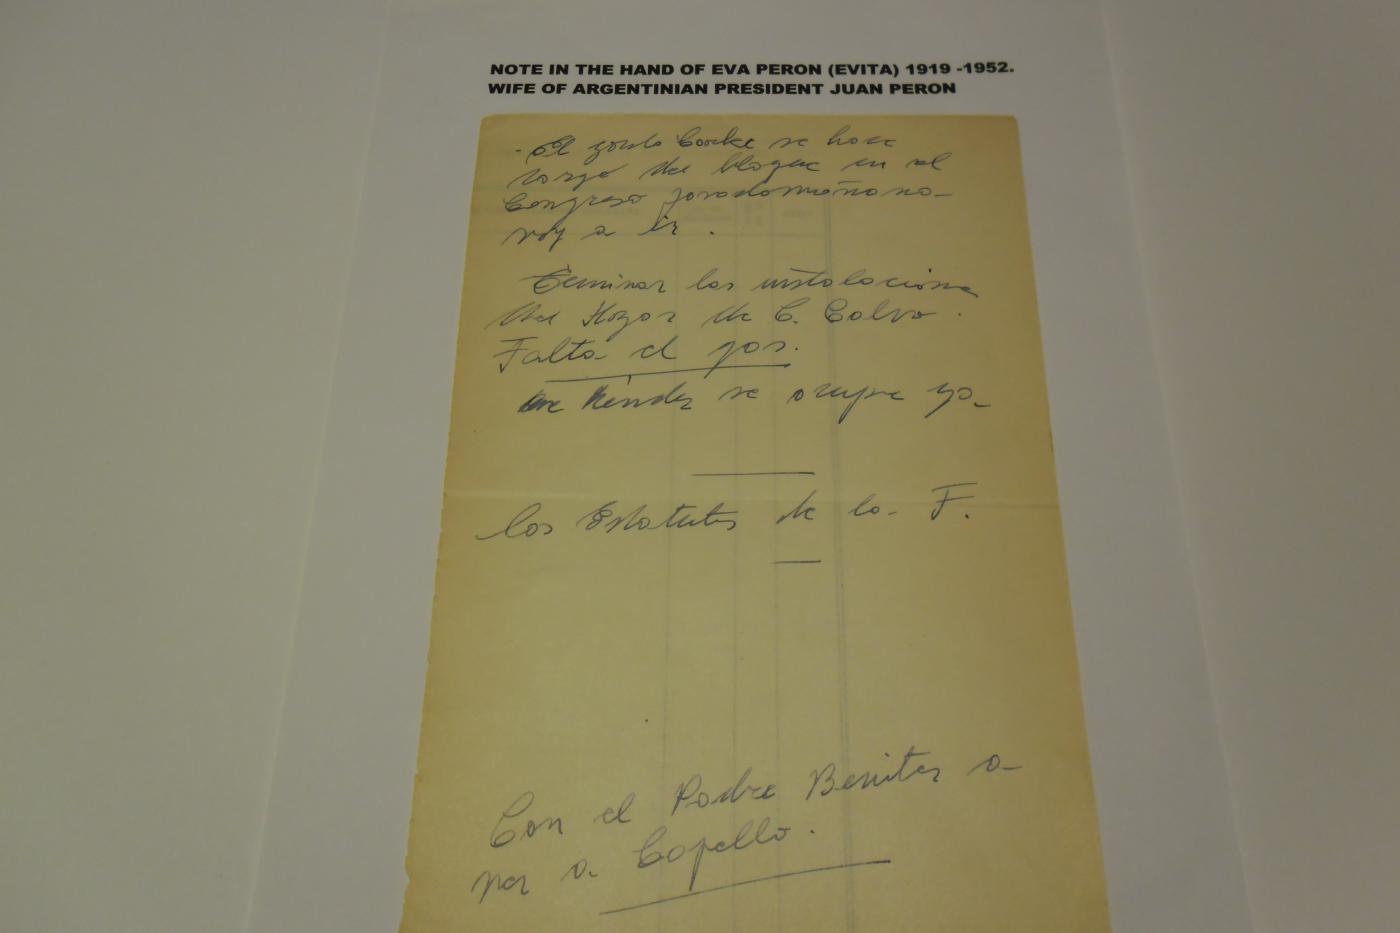 NOTE IN THE HAND OF EVA PERON (EVITA) 1919 -1952.
WIFE OF ARGENTINIAN PRESIDENT JUAN PERON
- El gordo Cooke se hace
cargo del bloque en el
Congreso pasado mañana no
voy a ir.
Terminar las instalaciones
del Hogar de C. Calvo.
Falta el gas.
que Méndez se ocupe ya
los Estatutos de la F.
Con el Padre Benitez a
ver a Copello.